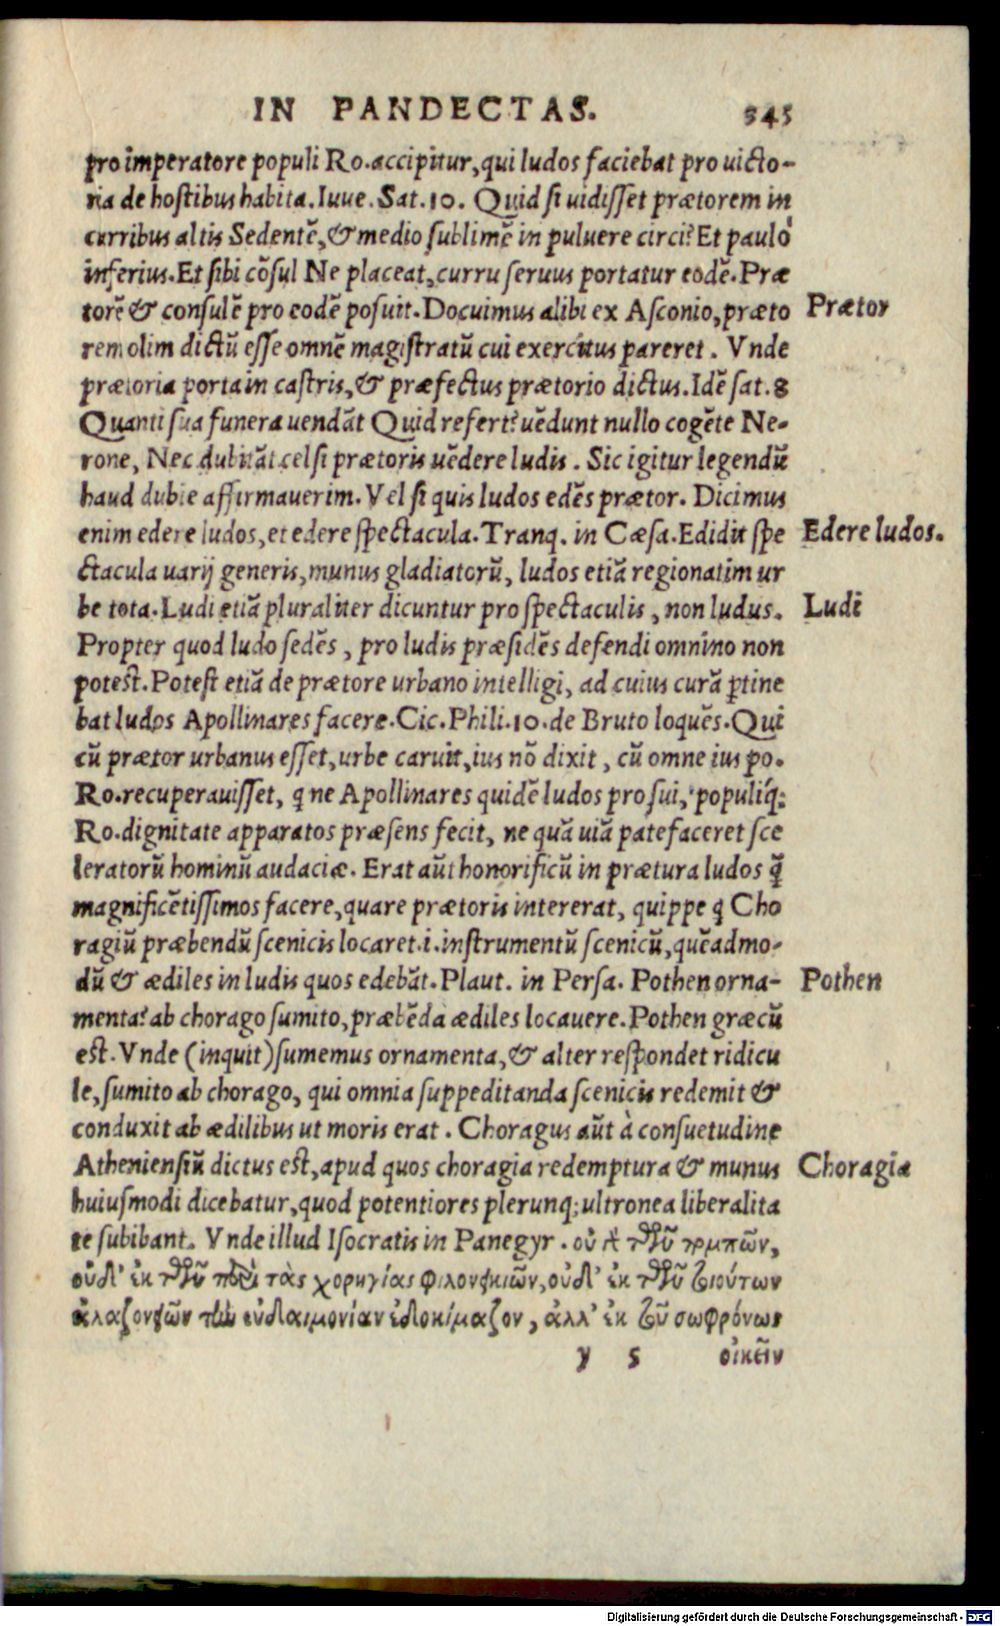 IN PANDECTAS. 345
pro imperatore populi Ro. accipitur, qui ludos faciebat pro uicto-
ria de hostibus habita. Iuue. Sat. 10. Quid si uidisset prætorem in
curribus altis Sedentẽ, & medio sublimẽ in puluere circi? Et paulò
inferius. Et sibi cõsul Ne placeat, curru seruus portatur eodẽ. Præ
torẽ & consulẽ pro eodẽ posuit. Docuimus alibi ex Asconio, præto
Prætor
rem olim dictũ esse omnẽ magistratũ cui exercitus pareret. Vnde
prætoria porta in castris, & præfectus prætorio dictus. Idẽ sat. 8
Quanti sua funera uendãt Quid refert? uẽdunt nullo cogẽte Ne-
rone, Nec dubitãt celsi prætoris uẽdere ludis. Sic igitur legendũ
haud dubie affirmauerim. Vel si quis ludos edẽs prætor. Dicimus
enim edere ludos, et edere spectacula. Tranq. in Cæsa. Edidit spe
Edere ludos.
ctacula uarij generis, munus gladiatorũ, ludos etiã regionatim ur
be tota. Ludi etiã pluraliter dicuntur pro spectaculis, non ludus.
Ludi
Propter quod ludo sedẽs, pro ludis præsidẽs defendi omnino non
potest. Potest etiã de prætore urbano intelligi, ad cuius curã ꝑtine
bat ludos Apollinares facere. Cic. Phili. 10. de Bruto loquẽs. Qui
cũ prætor urbanus esset, urbe caruit, ius nõ dixit, cũ omne ius po.
Ro. recuperauisset, q ne Apollinares quidẽ ludos pro sui, populiq́;
Ro. dignitate apparatos præsens fecit, ne quã uiã patefaceret sce
leratorũ hominũ audaciæ. Erat aũt honorificũ in prætura ludos q̃
magnificẽtissimos facere, quare prætoris intererat, quippe q Cho
ragiũ præbendũ scenicis locaret .i. instrumentũ scenicũ, quẽadmo-
dũ & ædiles in ludis quos edebãt. Plaut. in Persa. Pothen orna-
Pothen
menta? ab chorago sumito, præbẽda ædiles locauere. Pothen græcũ
est. Vnde (inquit) sumemus ornamenta, & alter respondet ridicu
le, sumito ab chorago, qui omnia suppeditanda scenicis redemit &
conduxit ab ædilibus ut moris erat. Choragus aũt à consuetudine
Atheniensiũ dictus est, apud quos choragia redemptura & munus
Choragia
huiusmodi dicebatur, quod potentiores plerunq; ultronea liberalita
te subibant. Vnde illud Isocratis in Panegyr. οὐ
οὐδ' ἐκ τῶν περὶ τὰς χορηγίας φιλονεικιῶν, οὐδ' ἐκ τῶν τοιούτων
ἀλαζονειῶν τὴν εὐδαιμονίαν ἐδοκίμαζον, ἀλλ' ἐκ τοῦ σωφρόνως
y 5 οἰκεῖν
Digitalisierung gefördert durch die Deutsche Forschungsgemeinschaft - DFG